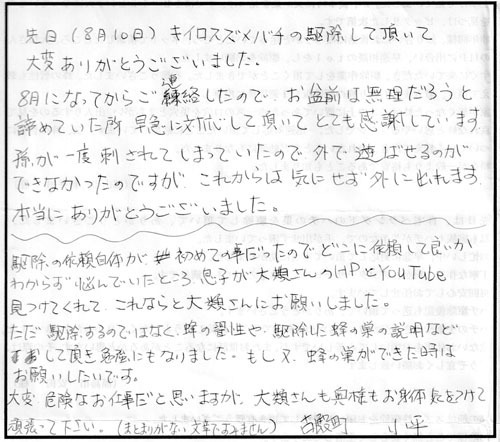 先日(8月10日)キイロスズメバチの駆除して頂いて
大変ありがとうございました。
8月になってからご連絡したので、お盆前は無理だろうと
諦めていた所 早急に対応して頂いてとても感謝しています
孫が一度刺されてしまっていたので外で遊ばせるのが
できなかったのですが、これからは気にせず外に出れます
本当にありがとうございました。
駆除の依頼自体が 初めての事だったのでどこに依頼して良いか
わからず悩んでいたところ、息子が大類さんのHPとYouTube
見つけてくれて、これならと大類さんにお願いしました。
ただ駆除するのではなく、蜂の習性や、駆除した蜂の巣の説明など
して頂き勉強にもなりました。もし又、蜂の巣ができた時は
お願いしたいです。
大変危険なお仕事だと思いますが、大類さんも奥様もお身体気をつけて
頑張って下さい。(まとまりがない文章ですみません) 古殿町 小平